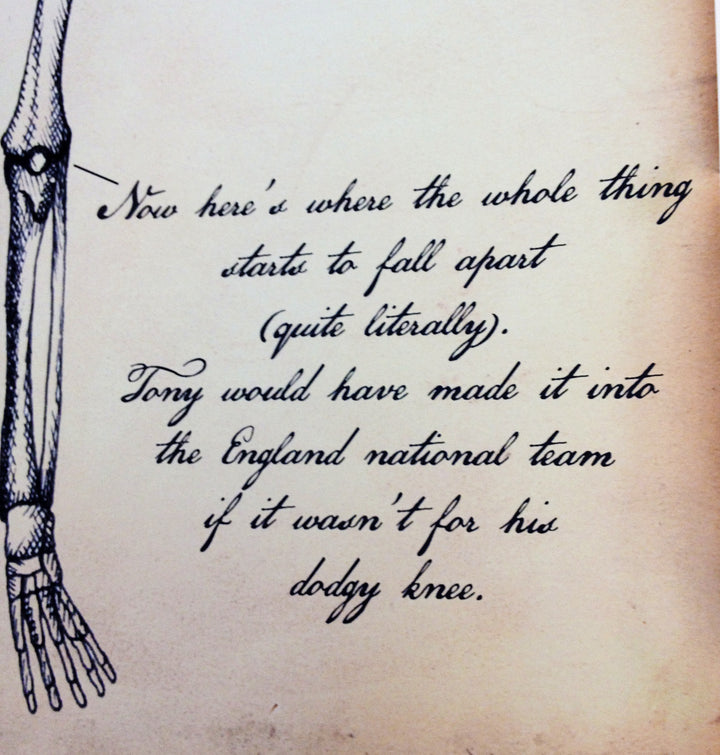 Now here's where the whole thing
starts to fall apart
(quite literally).
Tony would have made it into
the England national team
if it wasn't for his
dodgy knee.